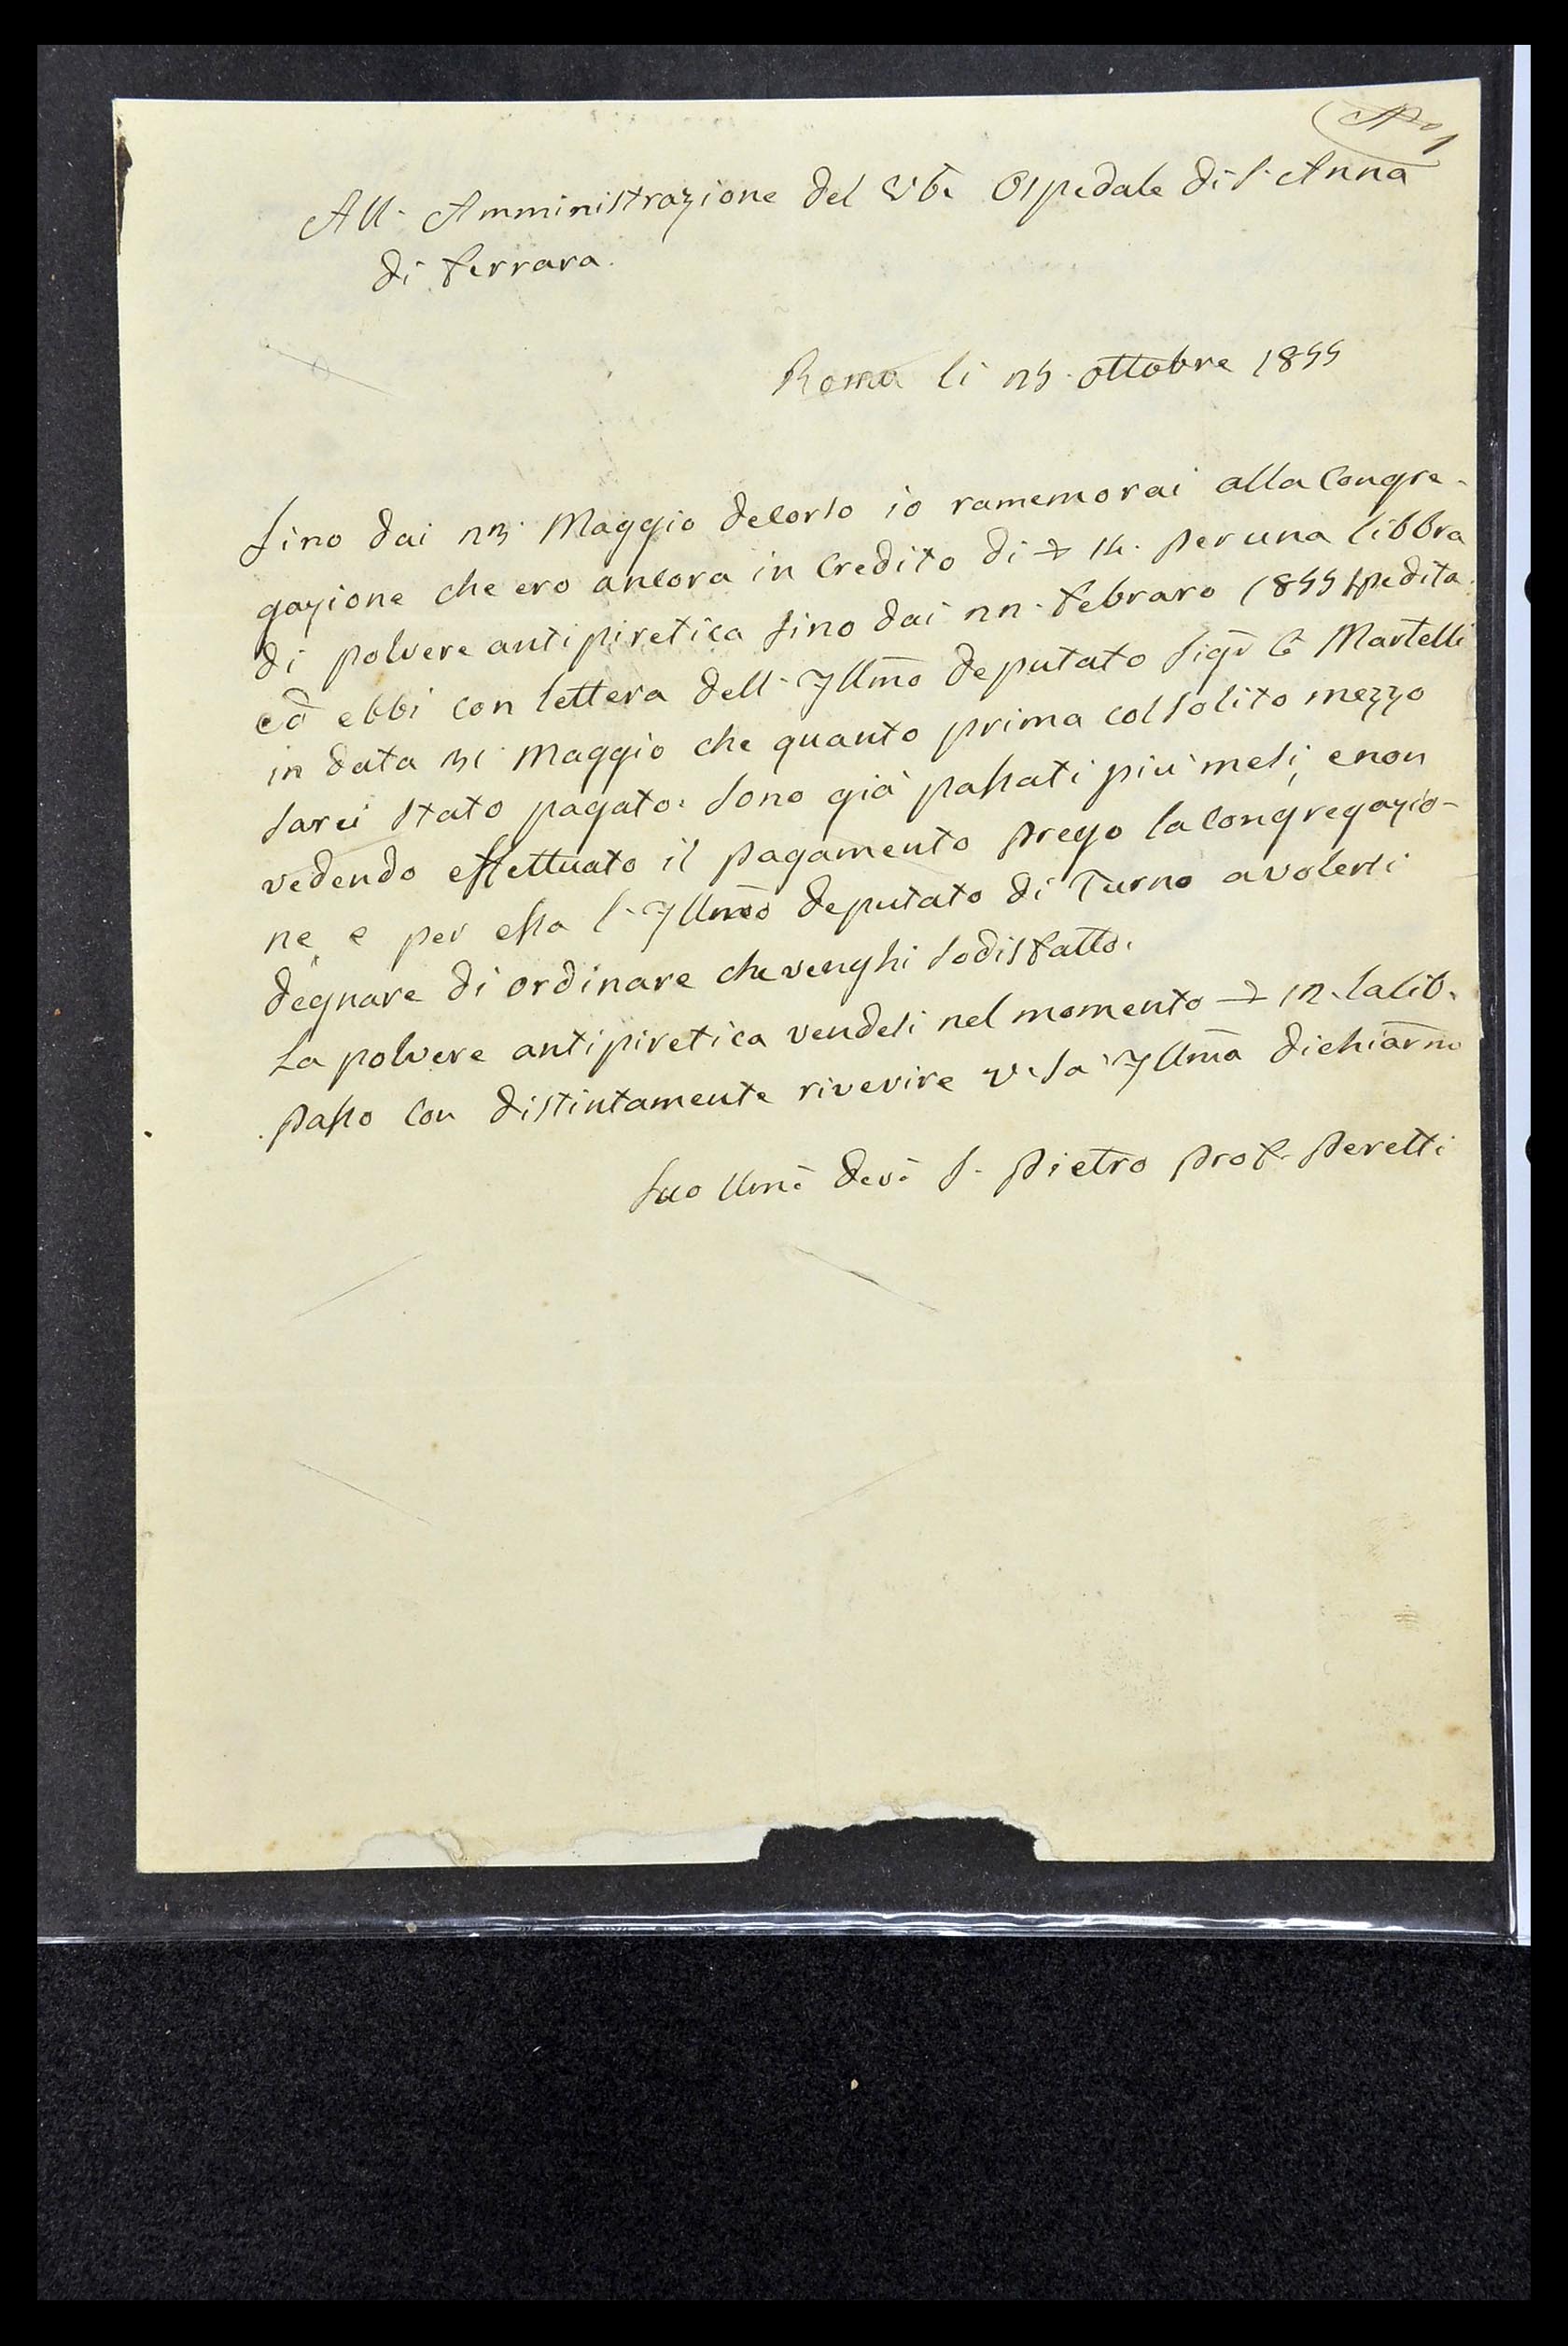 All. Amministrazione del Ven. Ospedale di S. Anna
di Ferrara.
Roma li 25. ottobre 1855
Fino dai 23. Maggio decorso io ramemorai alla Congre-
gazione che ero ancora in Credito di 14. per una libbra
di polvere antipiretica fino dai 22. Febraro 1855 spedita
ed ebbi con lettera dell. Illmo Deputato Sigr C. Martelli
in data 31 Maggio che quanto prima col solito mezzo
sarei stato pagato. Sono già passati più mesi, e non
vedendo effettuato il pagamento prego la Congregazio-
ne, e per essa l. Illmo Deputato di Turno a volersi
degnare di ordinare che venghi sodisfatto.
La polvere antipiretica vendesi nel momento 12. la lib.
passo con distintamente riverire V. Sa Illma dichiarmo
Suo Umo Devo S. Pietro Prof. Peretti